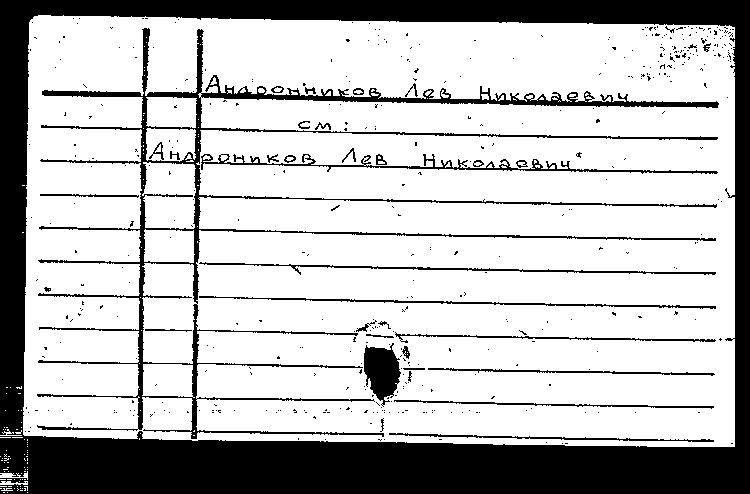 Андронников Лев Николаевич
см:
Андроников, Лев Николаевич